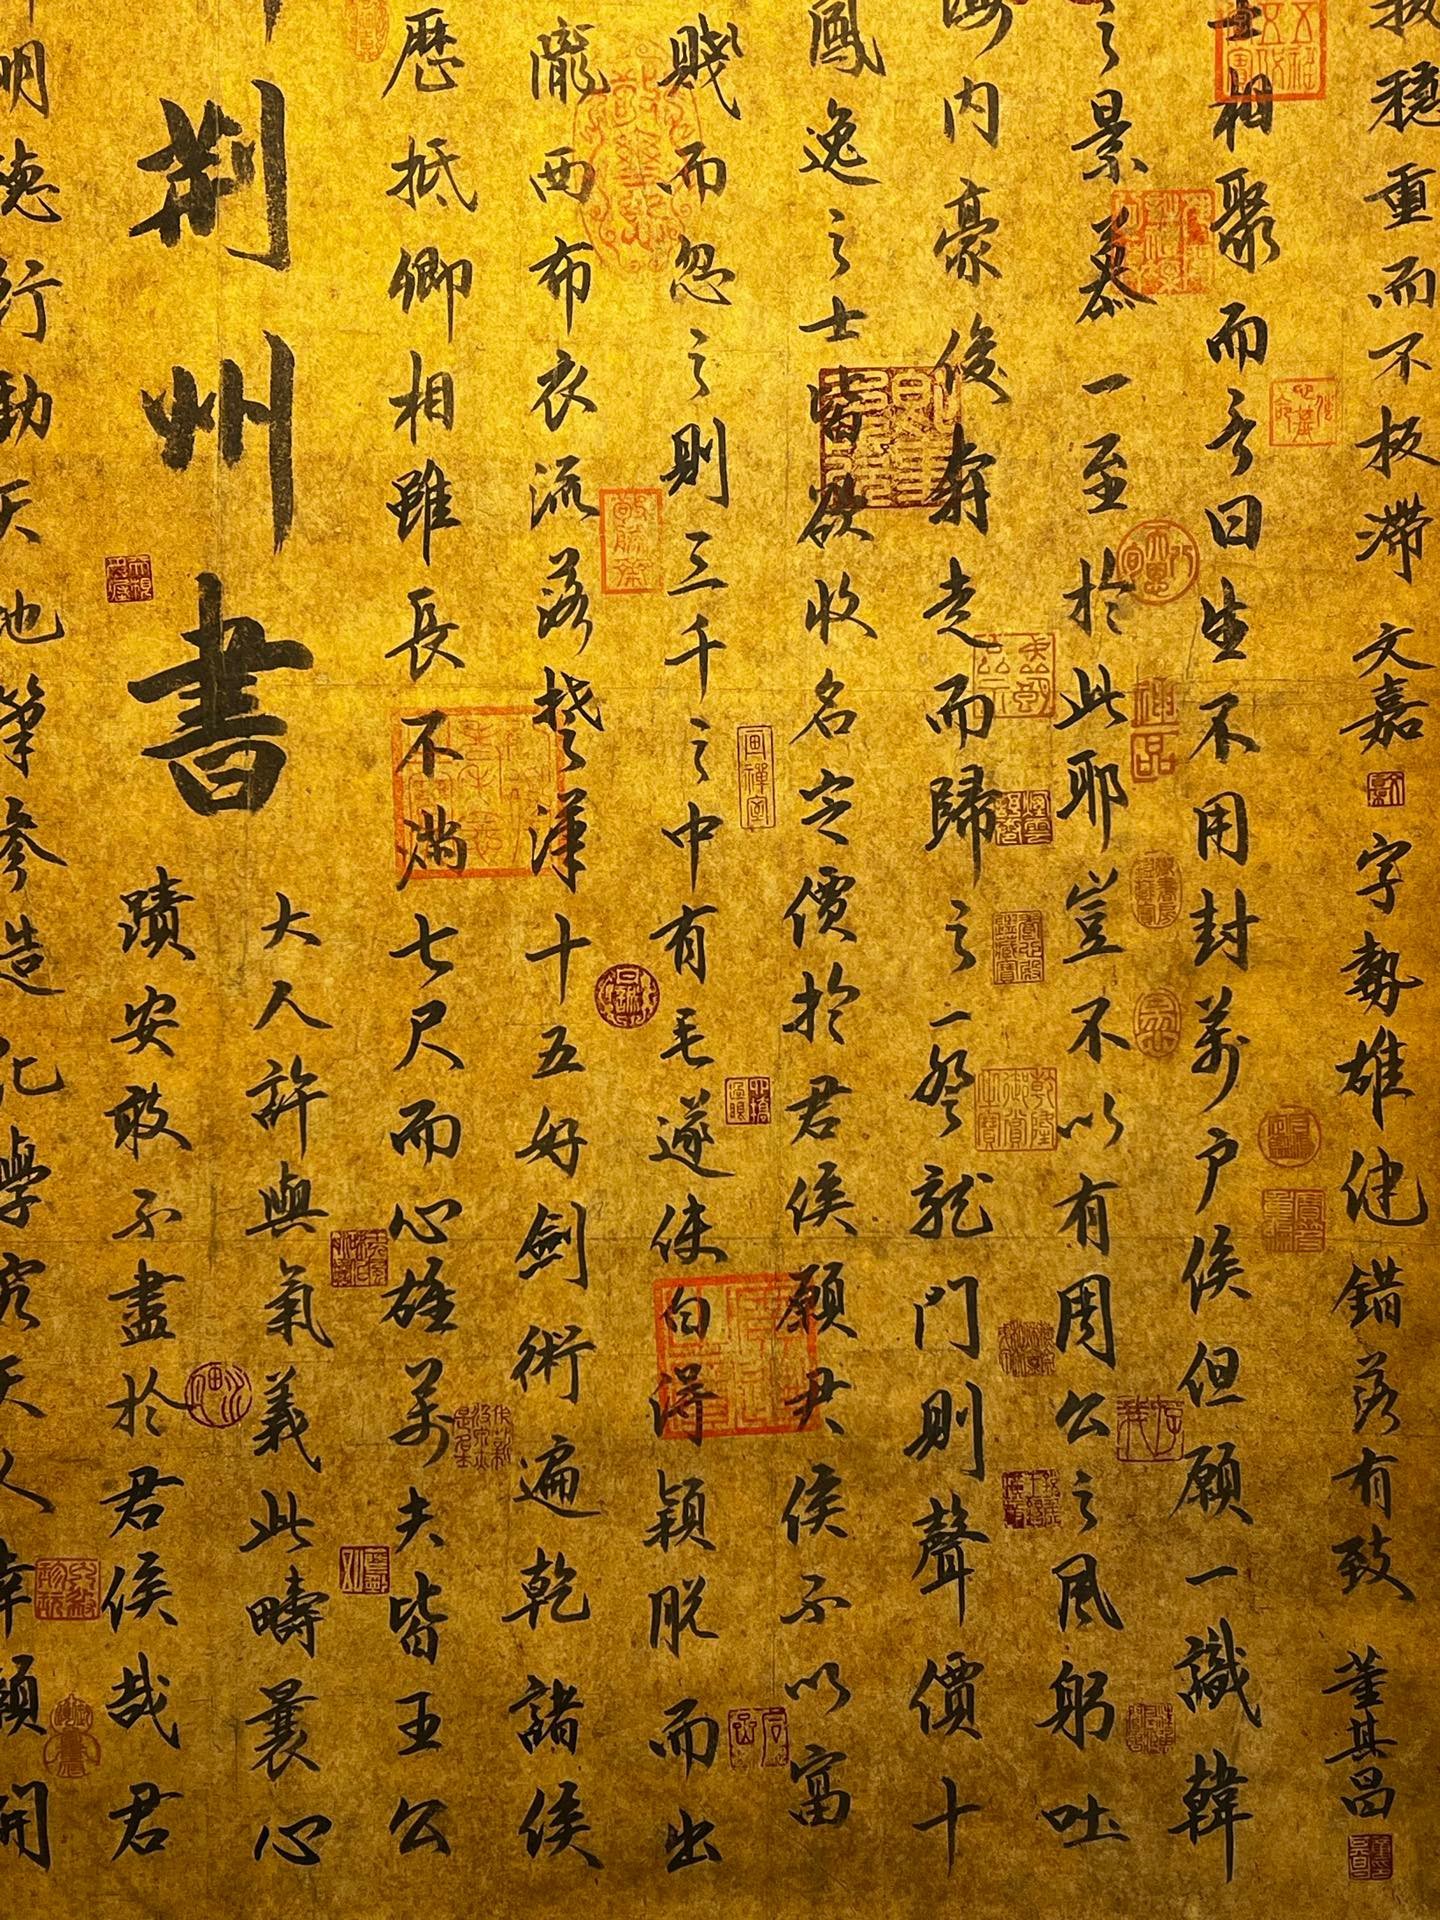 穩重而不板滯 文嘉 字勢雄健錯落有致 董其昌
士相聚而言曰生不用封萬户侯但願一識韓
之景慕一至於此耶豈不以有周公之風躬吐
海内豪俊奔走而歸之一登龍門則聲價十
鳳逸之士皆欲收名定價於君侯願尹侯不以富
賤而忽之則三千之中有毛遂使白得穎脱而出
隴西布衣流落楚漢十五好劍術遍乾諸侯
歷抵卿相雖長不滿七尺而心雄萬夫皆王公
大人許與氣義此疇曩心
荊州書
蹟安敢不盡於君侯哉君
明德行動天地筆參造化學究天人幸願開